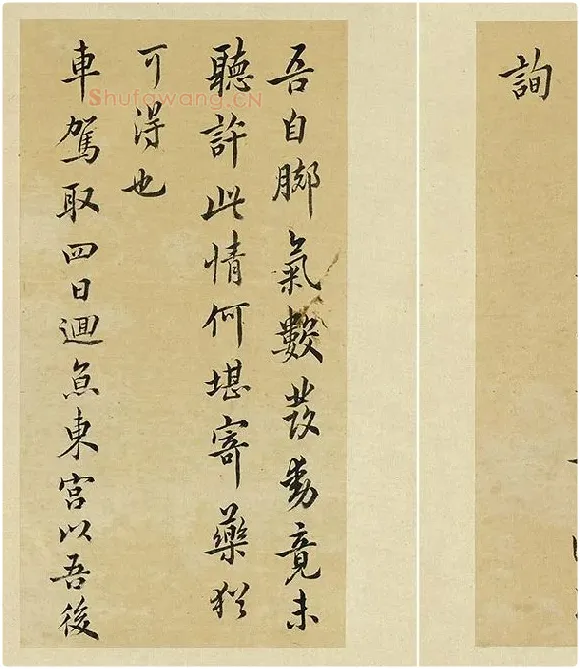 詢
吾自腳氣數發動竟未
聽許此情何堪寄藥猶
可得也
車駕取四日迴兼東宮以吾後
Shufawang.CN